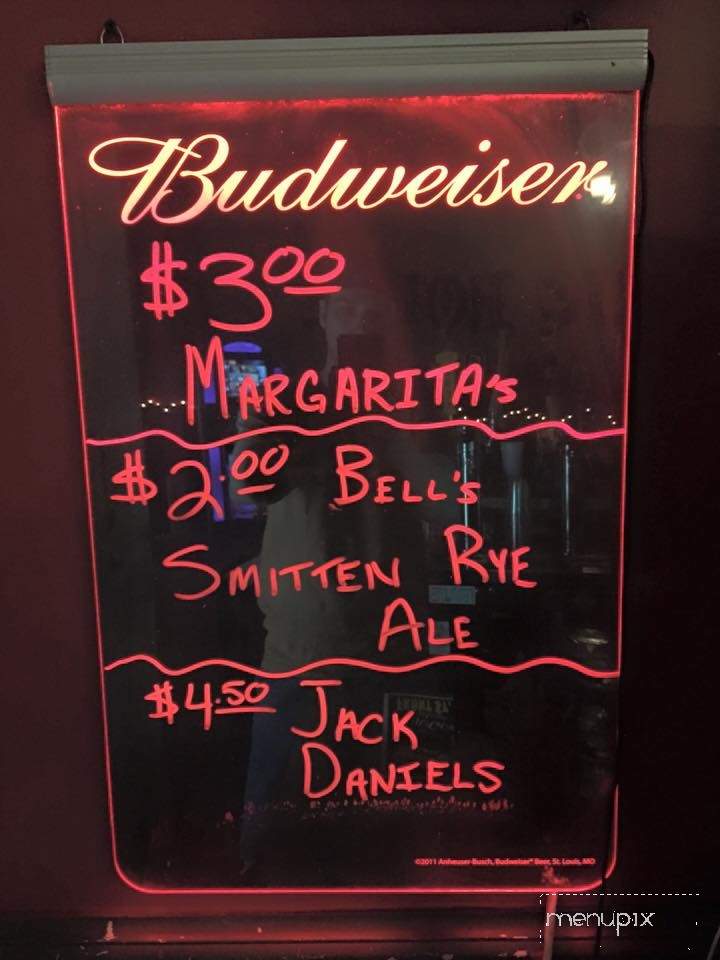 Budweiser
$3.00
MARGARITA'S
$2.00 BELL'S
SMITTEN RYE
ALE
$4.50 JACK
DANIELS
©2011 Anheuser-Busch, Budweiser® Beer, St. Louis, MO
menupix